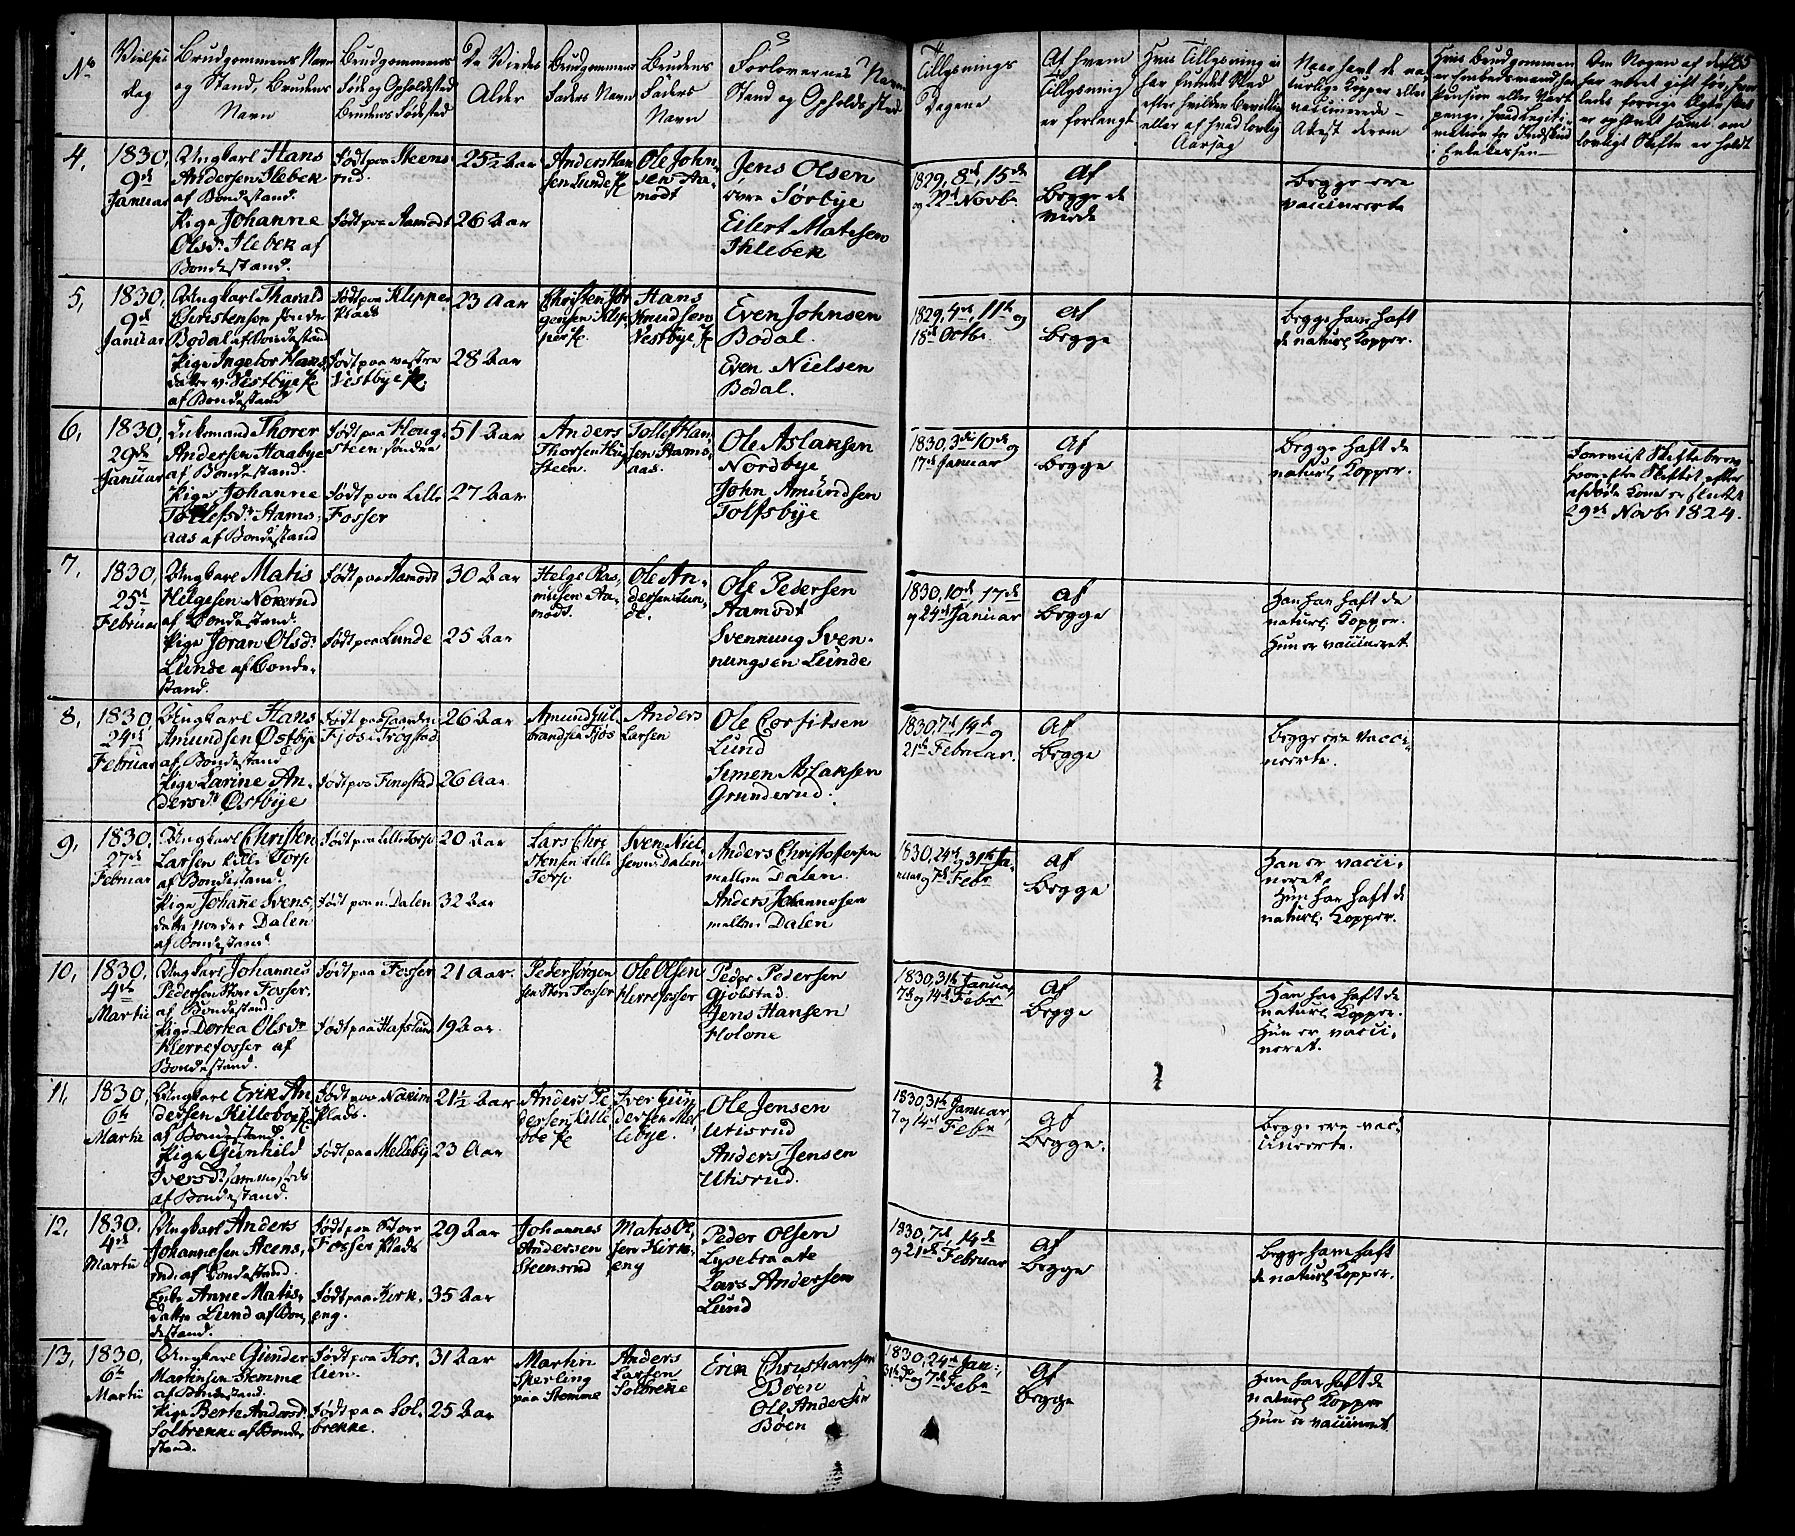 No
Vielses
dag
Brudgommens Navn
og Stand, Brudens
Navn
Brudgommens
Føde og Opholdsted
Brudens Fødested
De Viedes
Alder
Brudgommens
Faders Navn
Brudens
Faders
Navn
Forlovernes Navn
Stand og Opholdssted
Tillysnings
Dagene
Af hvem
Tillysning
er forlangt
4,
1830,
9de
Januar
Ungkarl Hans
Andersen Ilebek
af Bondestand.
Pige Johanne
Olsdr. Ilebek af
Bondestand.
Født paa Steens
rud.
Født paa Aamodt
25½ Aar
26 Aar
Anders Han
sen Lunde
Ole John
sen Aa
modt
Jens Olsen
øvre Sørbye
Eilert Matesen
Ihlebek
1829, 8de, 15de
og 22de Novbr
Af
Begge de
Viede
Begge ere
vaccineerte
5,
1830,
9de
Januar
Ungkarl Tharald
Christensen søndre
Bodal af Bondestand
Pige Ingebor Hans
datter v. Vestbye
af Bondestand
Født paa Klipper
Plads
Født paa vestre
Vestbye
23 Aar
28 Aar
Christen Jør
gensen Klip
per
Hans
Amundsen
Vestbye
Even Johnsen
Bodal.
Even Nielsen
Bodal.
1829, 4de, 11te og
18de Octbr
Af
Begge
Begge have haft
de naturl. Kopper.
6,
1830,
29de
Januar
Enkemand Thorer
Andersen Haabye
af Bondestand.
Pige Johanne
Tollefsdr. Hams
aas af Bondestand
Født paa Houg
Steen søndre
Født paa Lille
Fosser
51 Aar
27 Aar
Anders
Thorsen Houg
Steen.
Tollef Han
sen Hams
aas.
Ole Aslaksen
Nordbye
John Amundsen
Tolfsbye
1830, 3die, 10de og
17de Januar
Af
Begge
Begge haft de
naturl. Kopper.
Foreviist Skiftebrev
hvorefter Skiftet efter
afdøde Kone er sluttet
29de Novbr 1824.
7,
1830,
25de
Februar
Ungkarl Matis
Helgesen Nokerud
af Bondestand.
Pige Joran Olsdr.
Lunde af Bonde-
stand.
Født paa Aamodt
Født paa Lunde
30 Aar
25 Aar
Helge Ras,
musen Aa,
modt.
Ole An-
dersen Lun,
de.
Ole Pedersen
Aamodt
Svennung Sven-
nungsen Lunde
1830, 10de, 17de
og 24de Januar
Af
Begge
Han har haft de
naturl. Kopper.
Hun er vaccineret.
8,
1830,
24de
Februar
Ungkarl Hans
Amundsen Østbye
af Bondestand
Pige Karine An-
dersdr. Østbye
Født paa Gaarden
Fjos i Trøgstad
Født paa Finstad
26 Aar
26 Aar
Amund Gul
brandsen Fjos
Anders
Larsen
Ole Corfitsen
Lund
Simen Aslaksen
Grunderud.
1830, 7de, 14de og
21de Februar.
Af
Begge
Begge ere vacci-
neerte.
9,
1830.
27de
Februar
Ungkarl Christen
Larsen Lille Torp
af Bondestand.
Pige Johanne Svens,
datter nordre Dalen
af Bondestand.
Født paa Lille Torp
Født paa n. Dalen
20 Aar
32 Aar
Lars Chri
stensen Lille
Torp
Sven Niel
sen n. Dalen
Anders Christofersen
mellem Dalen.
Anders Johannesen
mellem Dalen
1830, 24de, 31te Ja-
nuar og 7de Febr
Af
Begge
Han er vacci-
neret.
Hun har haft de
naturl. Kopper.
10,
1830.
4de
Martii
Ungkarl Johannes
Pedersen Store Fosser,
af Bondestand.
Pige Dortea Olsdr.
Herrefosser af
Bondestand.
Født paa Fosser
Født paa Hafslund
21 Aar.
19 Aar.
Peder Jørgen
sen Store Fosser
Ole Olsen
Herrefosser
Peder Pedersen
Gjølstad.
Jens Hansen
Holone
1830, 31te Januar,
7de og 14de Febr
Af
Begge
Han har haft de
naturl. Kopper.
Hun er vacci-
neret.
11,
1830,
6te
Martii
Ungkarl Erik An
dersen Killebo
af Bondestand
Pige Gunhild
Iversdr. sammesteds
af Bondestand.
Plads.
Født paa Melleby
21½ Aar
23 Aar
Anders Pe
dersen Kille
boe
Iver Gun
dersen Mel
lebye.
Ole Jensen
Utisrud
Anders Jensen
Utisrud.
1830, 31te Januar,
7 og 14de Febr
Af
Begge.
Begge ere vac-
cineerte.
12,
1830.
4de
Martii
Ungkarl Anders
Johannesen Steens,
rud, af Bondestand.
Enke Anne Matis,
datter Lund af Bon,
destand.
Født paa Store
Fosser Plads
Født paa Kirk,
eng.
29 Aar
35 Aar
Johannes
Andersen
Steensrud
Matis Ol,
sen Kirk,
eng
Peder Olsen
Lysebraate
Lars Andersen
Lund
1830, 7de, 14de
og 21de Februar
Af
Begge
Begge have haft
de naturl. Kopper.
13,
1830,
6te
Martii
Ungkarl Gunder
Martinsen Stemme
af Bondestand.
Pige Berte Andersd.
Solbrekke af Bonde
stand.
Født paa Kor,
lien.
Født paa Sol,
brekke.
31 Aar
25 Aar
Martin
Sperling
paa Stemme
Anders
Larsen
Solbrekke
Erik Christiansen
Bøen
Ole Andersen
Bøen
1830, 24de Jan.,
31te og 7de Febr
Af
Begge
Han har haft de
naturl. Kopper
Hun er vaccineret.